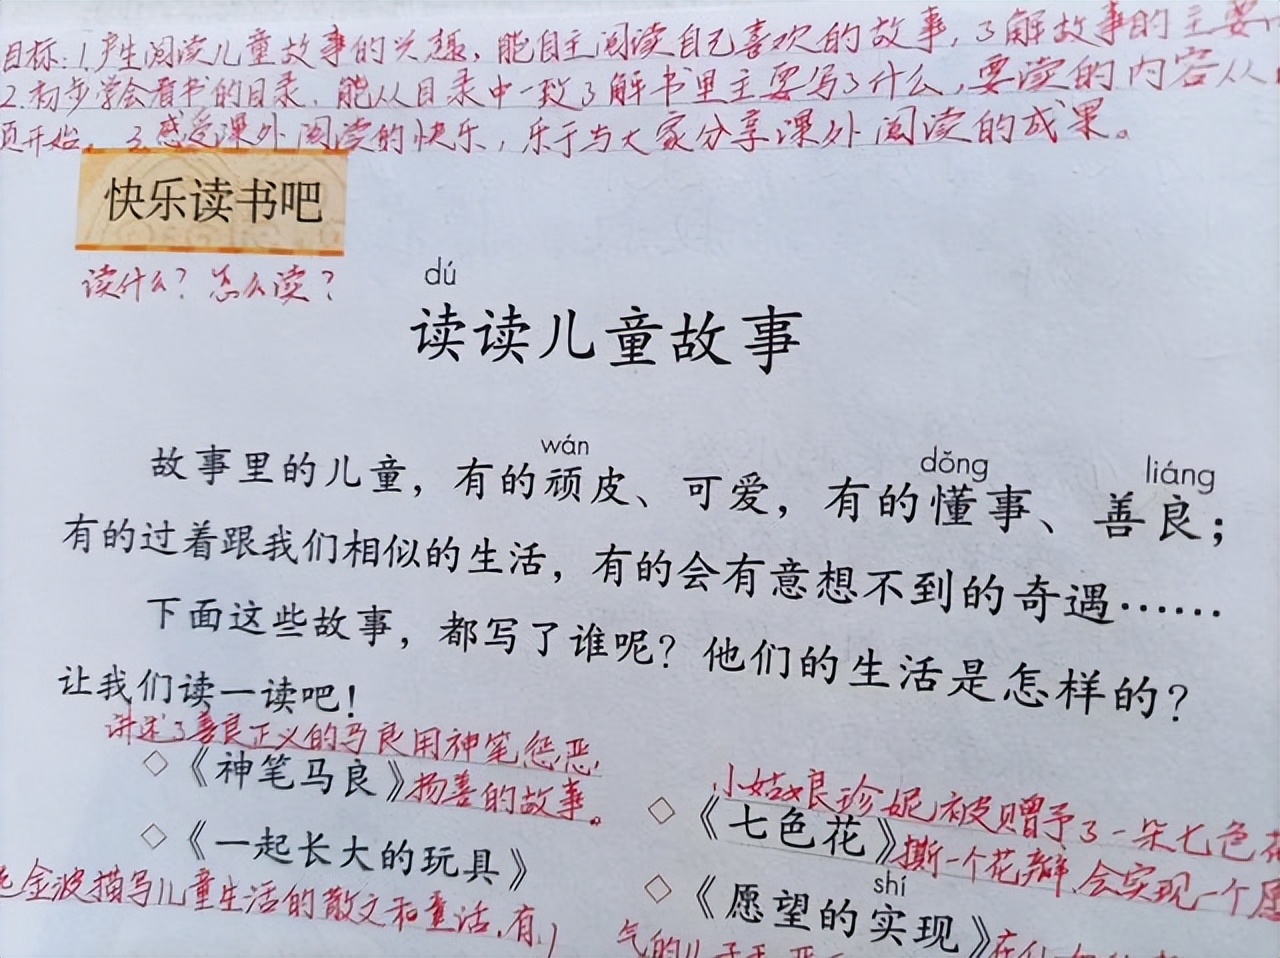 目标:1.产生阅读儿童故事的兴趣,能自主阅读自己喜欢的故事,了解故事的主要
2.初步学会看书的目录,能从目录中一致了解书里主要写了什么,要读的内容从
页开始。3.感受课外阅读的快乐,乐于与大家分享课外阅读的成果。
快乐读书吧
读什么?怎么读?
dú
读读儿童故事
wán dǒng liáng
故事里的儿童,有的顽皮、可爱,有的懂事、善良;
有的过着跟我们相似的生活,有的会有意想不到的奇遇……
下面这些故事,都写了谁呢?他们的生活是怎样的?
让我们读一读吧!
讲述了善良正义的马良用神笔惩恶
◇《神笔马良》扬善的故事。
小姑娘珍妮被赠予了一朵七色花
◇《七色花》撕一个花瓣,会实现一个愿
◇《一起长大的玩具》
金波描写儿童生活的散文和童话,有
shí
◇《愿望的实现》